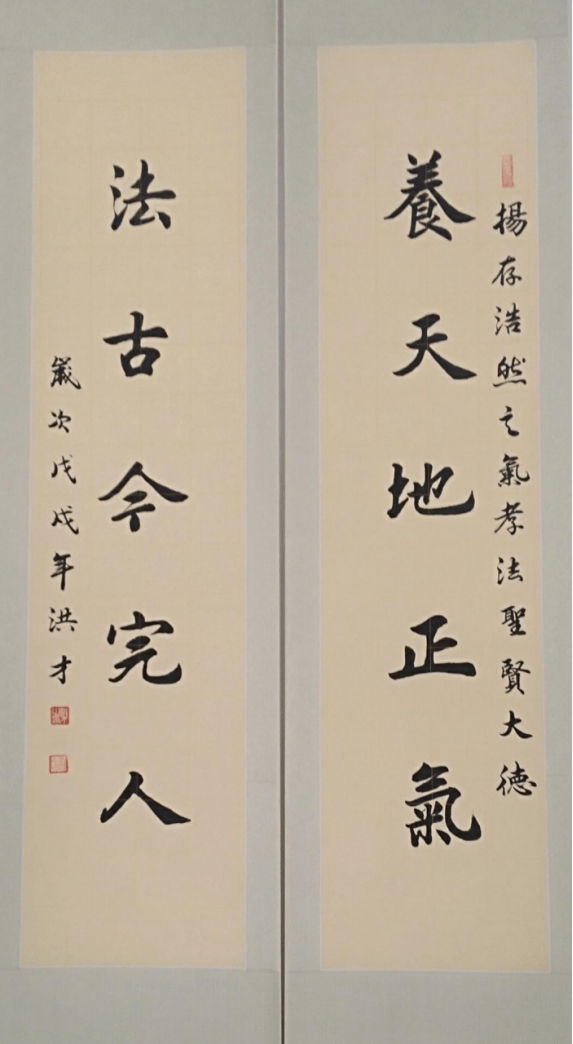 揚存浩然之氣孝法聖賢大德
養天地正氣
法古今完人
歲次戊戌年洪才